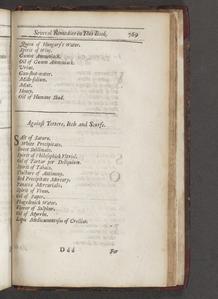 Several Remedies in This Book. 769
Queen of Hungary's Water.
Spirit of Wine.
Gumm Ammoniack.
Oil of Gumm Ammoniack.
Urine.
Can-foot-water.
Musk.
Honey.
Oil of Humane Skul.
Against Tetters, Itch and Scurfe.
Salt of Saturn.
White Precipitate.
Sweet Sublimate.
Spirit of Philosophick Vitriol.
Oil of Tartar per Deliquium.
Spirit of Tabaco.
Tincture of Antimony.
Red Precipitate Mercury.
Panacea Mercurialis.
Spirit of
Oil of Paper.
Phagedenick Water.
Flower of Sulphur.
Oil of Myrrhe.
Lapis Medicamentosus of Crollius.
D d d For